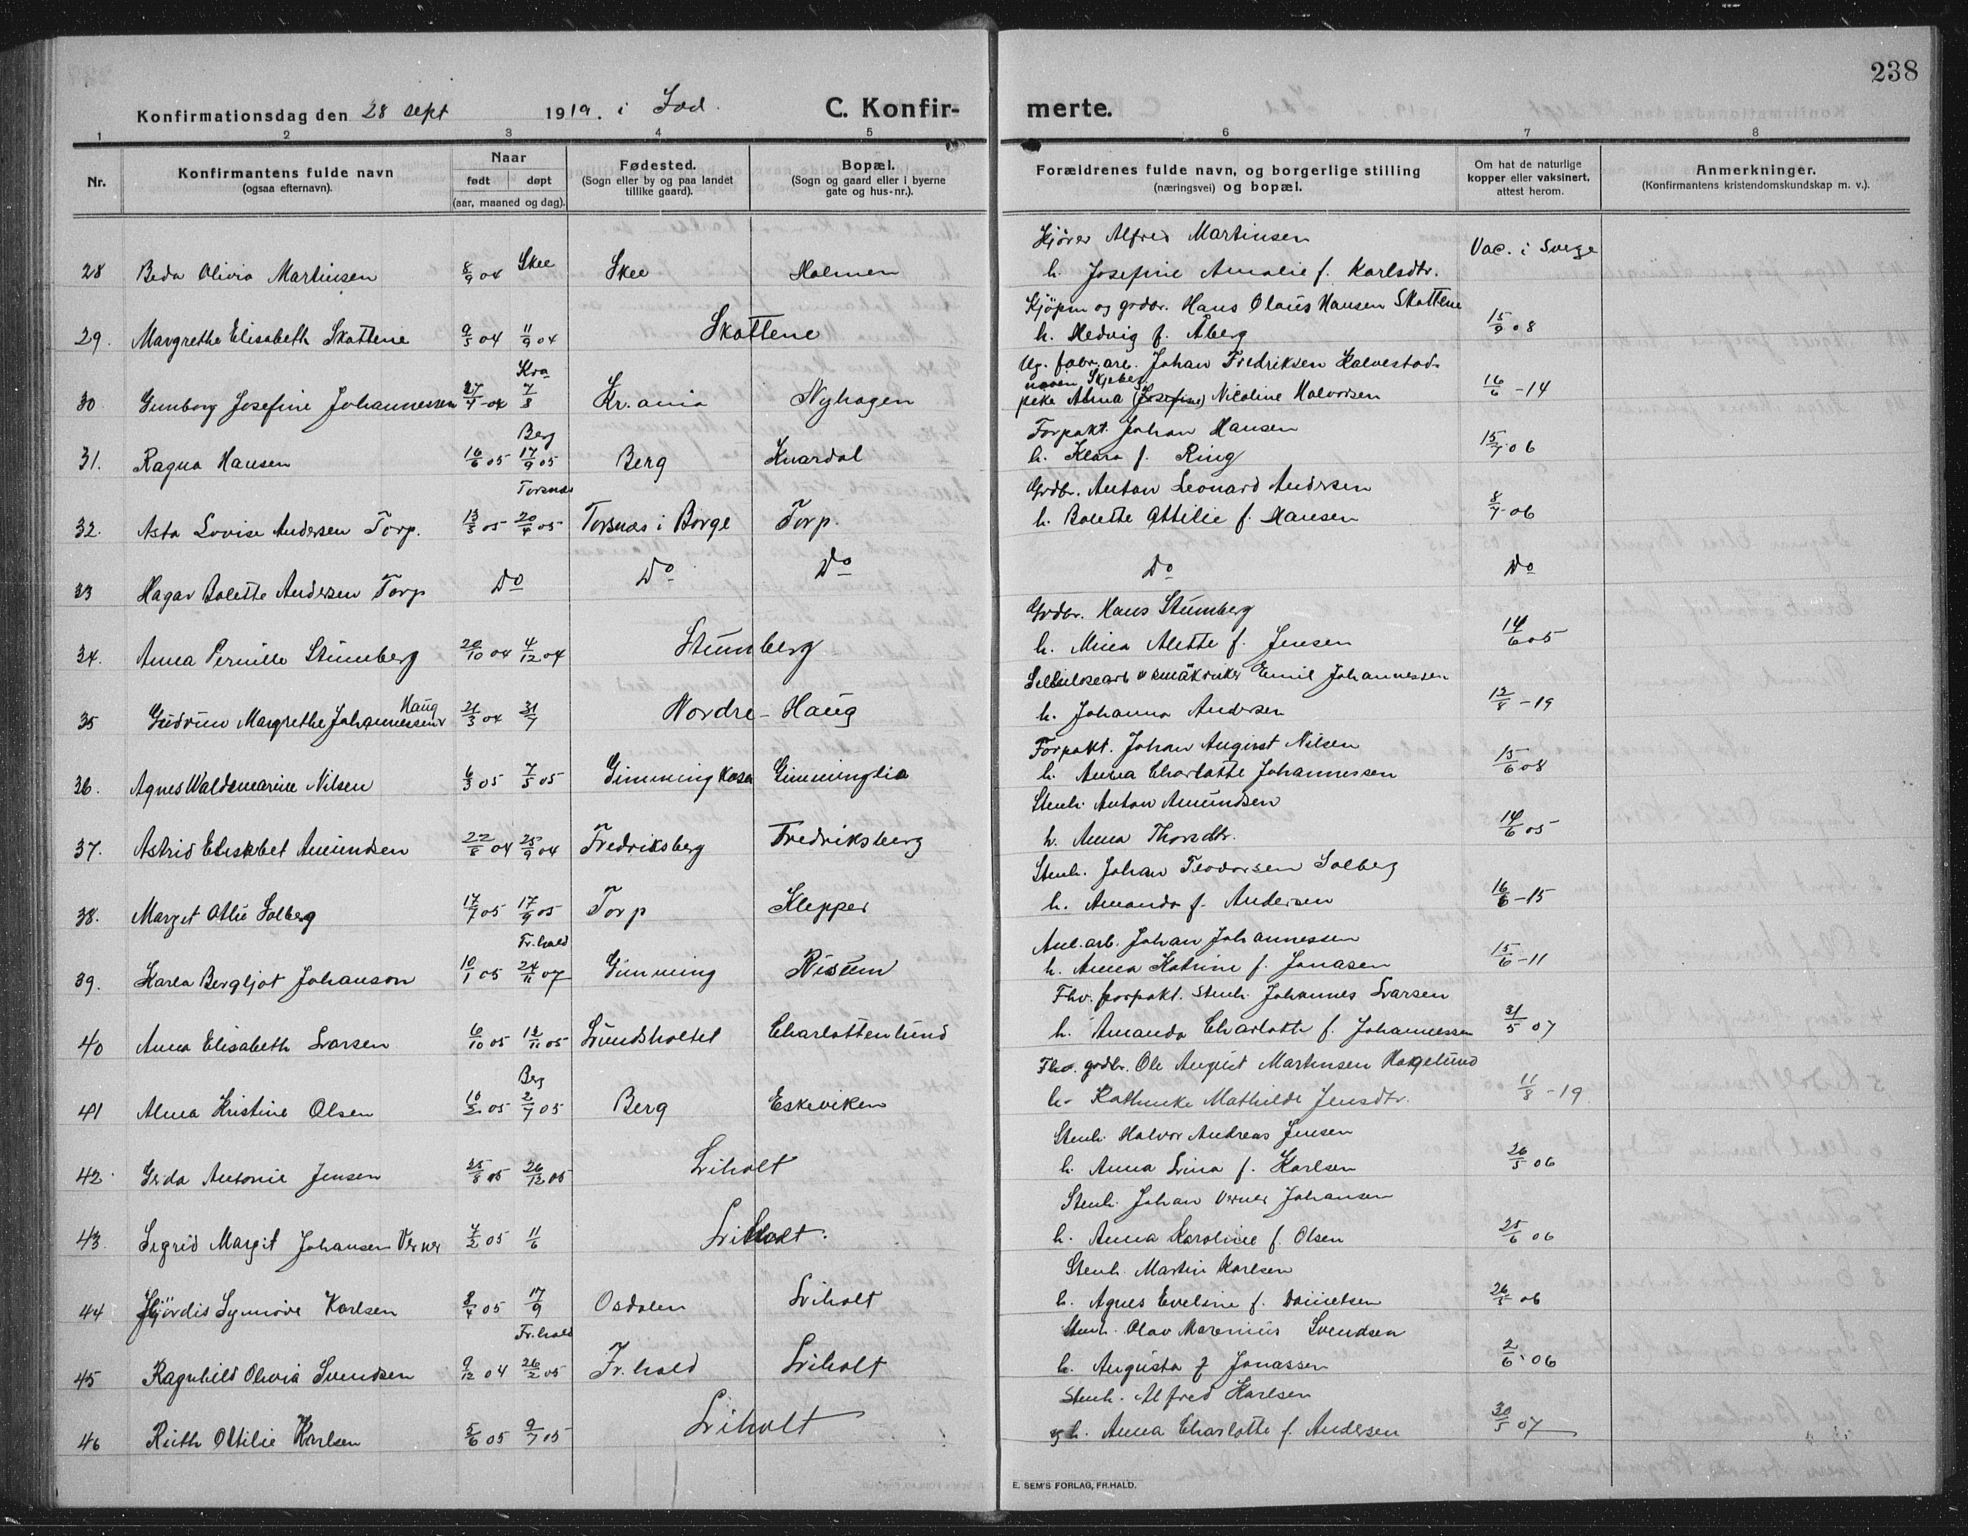 238
Konfirmationsdag den 28 sept 1919. i Idd. C. Konfirmerte.
1 2 3 4 5 6 7 8
Nr.
Konfirmantens fulde navn
(ogsaa efternavn).
Naar
født døpt
(aar, maaned og dag).
Fødested.
(Sogn eller by og paa landet
tillike gaard).
Bopæl.
(Sogn og gaard eller i byerne
gate og hus-nr.).
Forældrenes fulde navn, og borgerlige stilling
(næringsvei) og bopæl.
Om hat de naturlige
kopper eller vaksinert,
attest herom.
Anmerkninger.
(Konfirmantens kristendomskundskap m. v.).
Kjører Alfred Martinsen
28 Beda Olivia Martinsen 8/9 04 Skee Skee Holmen h. Josefine Amalie f. Karlsdtr. Vac. i Sverge
Kjøpm og grdbr. Hans Olaus Hansen Skattene
29. Margrethe Elisabeth Skattene 9/5 04 11/9 04 Skattene h. Hedvig f. Åberg 15/9 08
Kra Ug. fabr. arb. Johan Fredriksen Kalvestad-
30 Gunborg Josefine Johannessen 27/4 04 7/8 Kr.ania Nyhagen pike Alma (Josefine) Nicoline Halvorsen 16/6 - 14
Berg Forpakt. Johan Hansen
31. Ragna Hansen 16/6 05 17/9 05 Berg Knardal h. Klara f. Ring 15/7 06
Torsnæs Grdbr. Anton Leonard Andersen
32. Asta Lovise Andersen Torp. 13/3 05 20/4 05 Torsnæs i Borge Torp. h. Bolette Attilie f. Hansen 8/7 06
33 Hagar Bolette Andersen Torp Do Do Do Do Do
Grdbr. Hans Stumberg
34. Anna Pernille Stumberg 20/10 04 4/12 04 Stumberg h. Mina Alette f. Jensen 14/6 05
Cellulosearb o småbruker Emil Johannessen
35 Gudrun Margrethe Johannessen Haug 21/3 04 31/7 Nordre - Haug h. Johanna Andersen 12/8 - 19
Forpakt. Johan August Nilsen
36. Agnes Waldemarine Nilsen 6/3 05 7/5 05 Gimmingkasa Gimminglia h. Anna Charlotte Johannessen 15/6 08
Stenh. Anton Amundsen
37. Astrid Elisabet Amundsen 22/8 04 25/9 04 Fredriksberg Fredriksberg h. Anna Thorsdtr. 14/6 05
Stenh. Johan Teodorsen Solberg
38. Marget Otlie Solberg 17/7 05 17/9 05 Torp Klepper h. Amanda f. Andersen 16/6 - 15
Fr.hald Anl. arb. Johan Johannessen
39. Karla Bergljot Johanson 10/1 05 24/11 07 Gimming Risum h. Anna Katrine f. Jonasen 15/6 - 11
Fhv. forpakt. Stenh. Johannes Larsen
40 Anna Elisabeth Larsen 6/10 05 12/11 05 Lundsholtet Charlottenlund h. Amanda Charlotte f. Johannessen 31/5 07
Berg Fhv. grdbr. Ole August Martinsen Hakelund
41 Alma Kristine Olsen 10/2 05 2/7 05 Berg Eskeviken h. Kathinke Mathilde Jensdtr. 11/8 - 19
Stenh. Halvor Andreas Jensen
42. Gerda Antonie Jensen 25/8 05 26/12 05 Liholt h. Anna Lina f. Karlsen 26/5 06
Stenh. Johan Verner Johansen
43. Sigrid Margit Johansen Verner 4/2 05 11/6 Liholt. h. Anna Karoline f. Olsen 25/6 06
Stenh. Martin Karlsen
44 Hjørdis Synnøve Karlsen 8/4 05 17/9 Osdalen Liholt h. Agnes Eveline f. Danielsen 26/5 06
Fr.hald Stenh. Olav Marenius Svendsen
45 Ragnhild Olivia Svendsen 9/12 04 26/2 05 Fr.hald Liholt h. Augusta f Jonassen 2/6 06
Stenh. Alfred Karlsen
46 Ruth Ottilie Karlsen 5/6 05 9/7 05 Liholt h. Anna Charlotte f. Andersen 30/5 07
E. SEM'S FORLAG, FR.HALD.